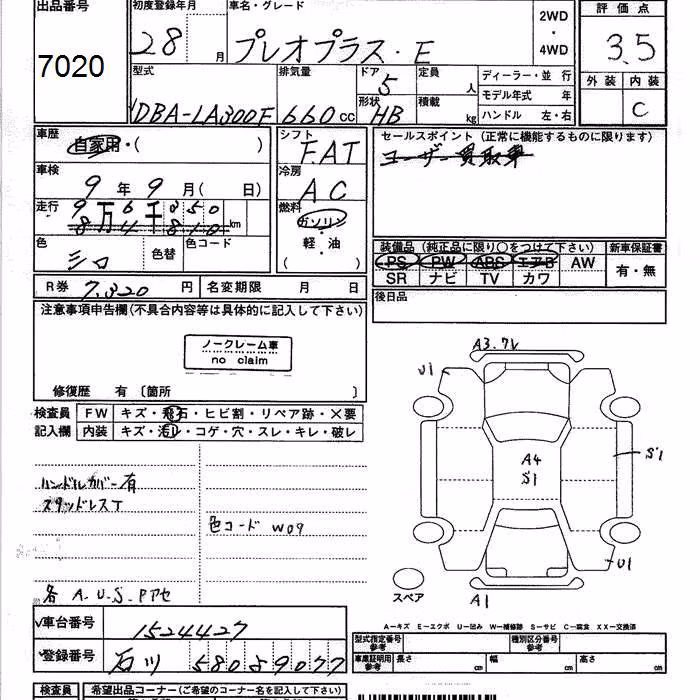 出品番号
7020
初度登録年月
28 月
車名・グレード
プレオプラス・E
2WD
・
4WD
評価点
3.5
外装 内装
C
型式
DBA-LA300F
排気量
660 cc
ドア
5
形状
HB
定員
人
積載
kg
ディーラー・並 行
モデル年式 年
ハンドル 左・右
車歴
自家用・( )
車検
9 年 9 月( 日)
走行
9万6千350
8万4千810 km
色
シロ
色替
色コード
シフト
FAT
冷房
AC
燃料
ガソリン
・
軽・油
( )
セールスポイント(正常に機能するものに限ります)
ユーザー買取車
装備品(純正品に限り○をつけて下さい)
PS PW ABS エアB AW
SR ナビ TV カワ
新車保証書
有・無
R券 7,320 円
名変期限 月 日
後日品
注意事項申告欄(不具合内容等は具体的に記入して下さい)
ノークレーム車
no claim
修復歴 有〔箇所 〕
検査員
記入欄
FW キズ・飛石・ヒビ割・リペア跡・×要
内装 キズ・汚レ・コゲ・穴・スレ・キレ・破レ
ハンドルカバー有
スタッドレスT
色コード W09
各 A.U.S.Pアセ
A3.7V
U1
A4
S1
S1
U1
A1
スペア
A−キズ E−エクボ U−凹み W−補修跡 S−サビ C−腐食 XX−交換済
車台番号
1524427
登録番号
石川 580 る9077
型式指定番号
参考
種別区分番号
参考
車庫証明用
参考
長さ cm
幅 cm
高さ cm
検査員
希望出品コーナー(ご希望のコーナー名を記入下さい)